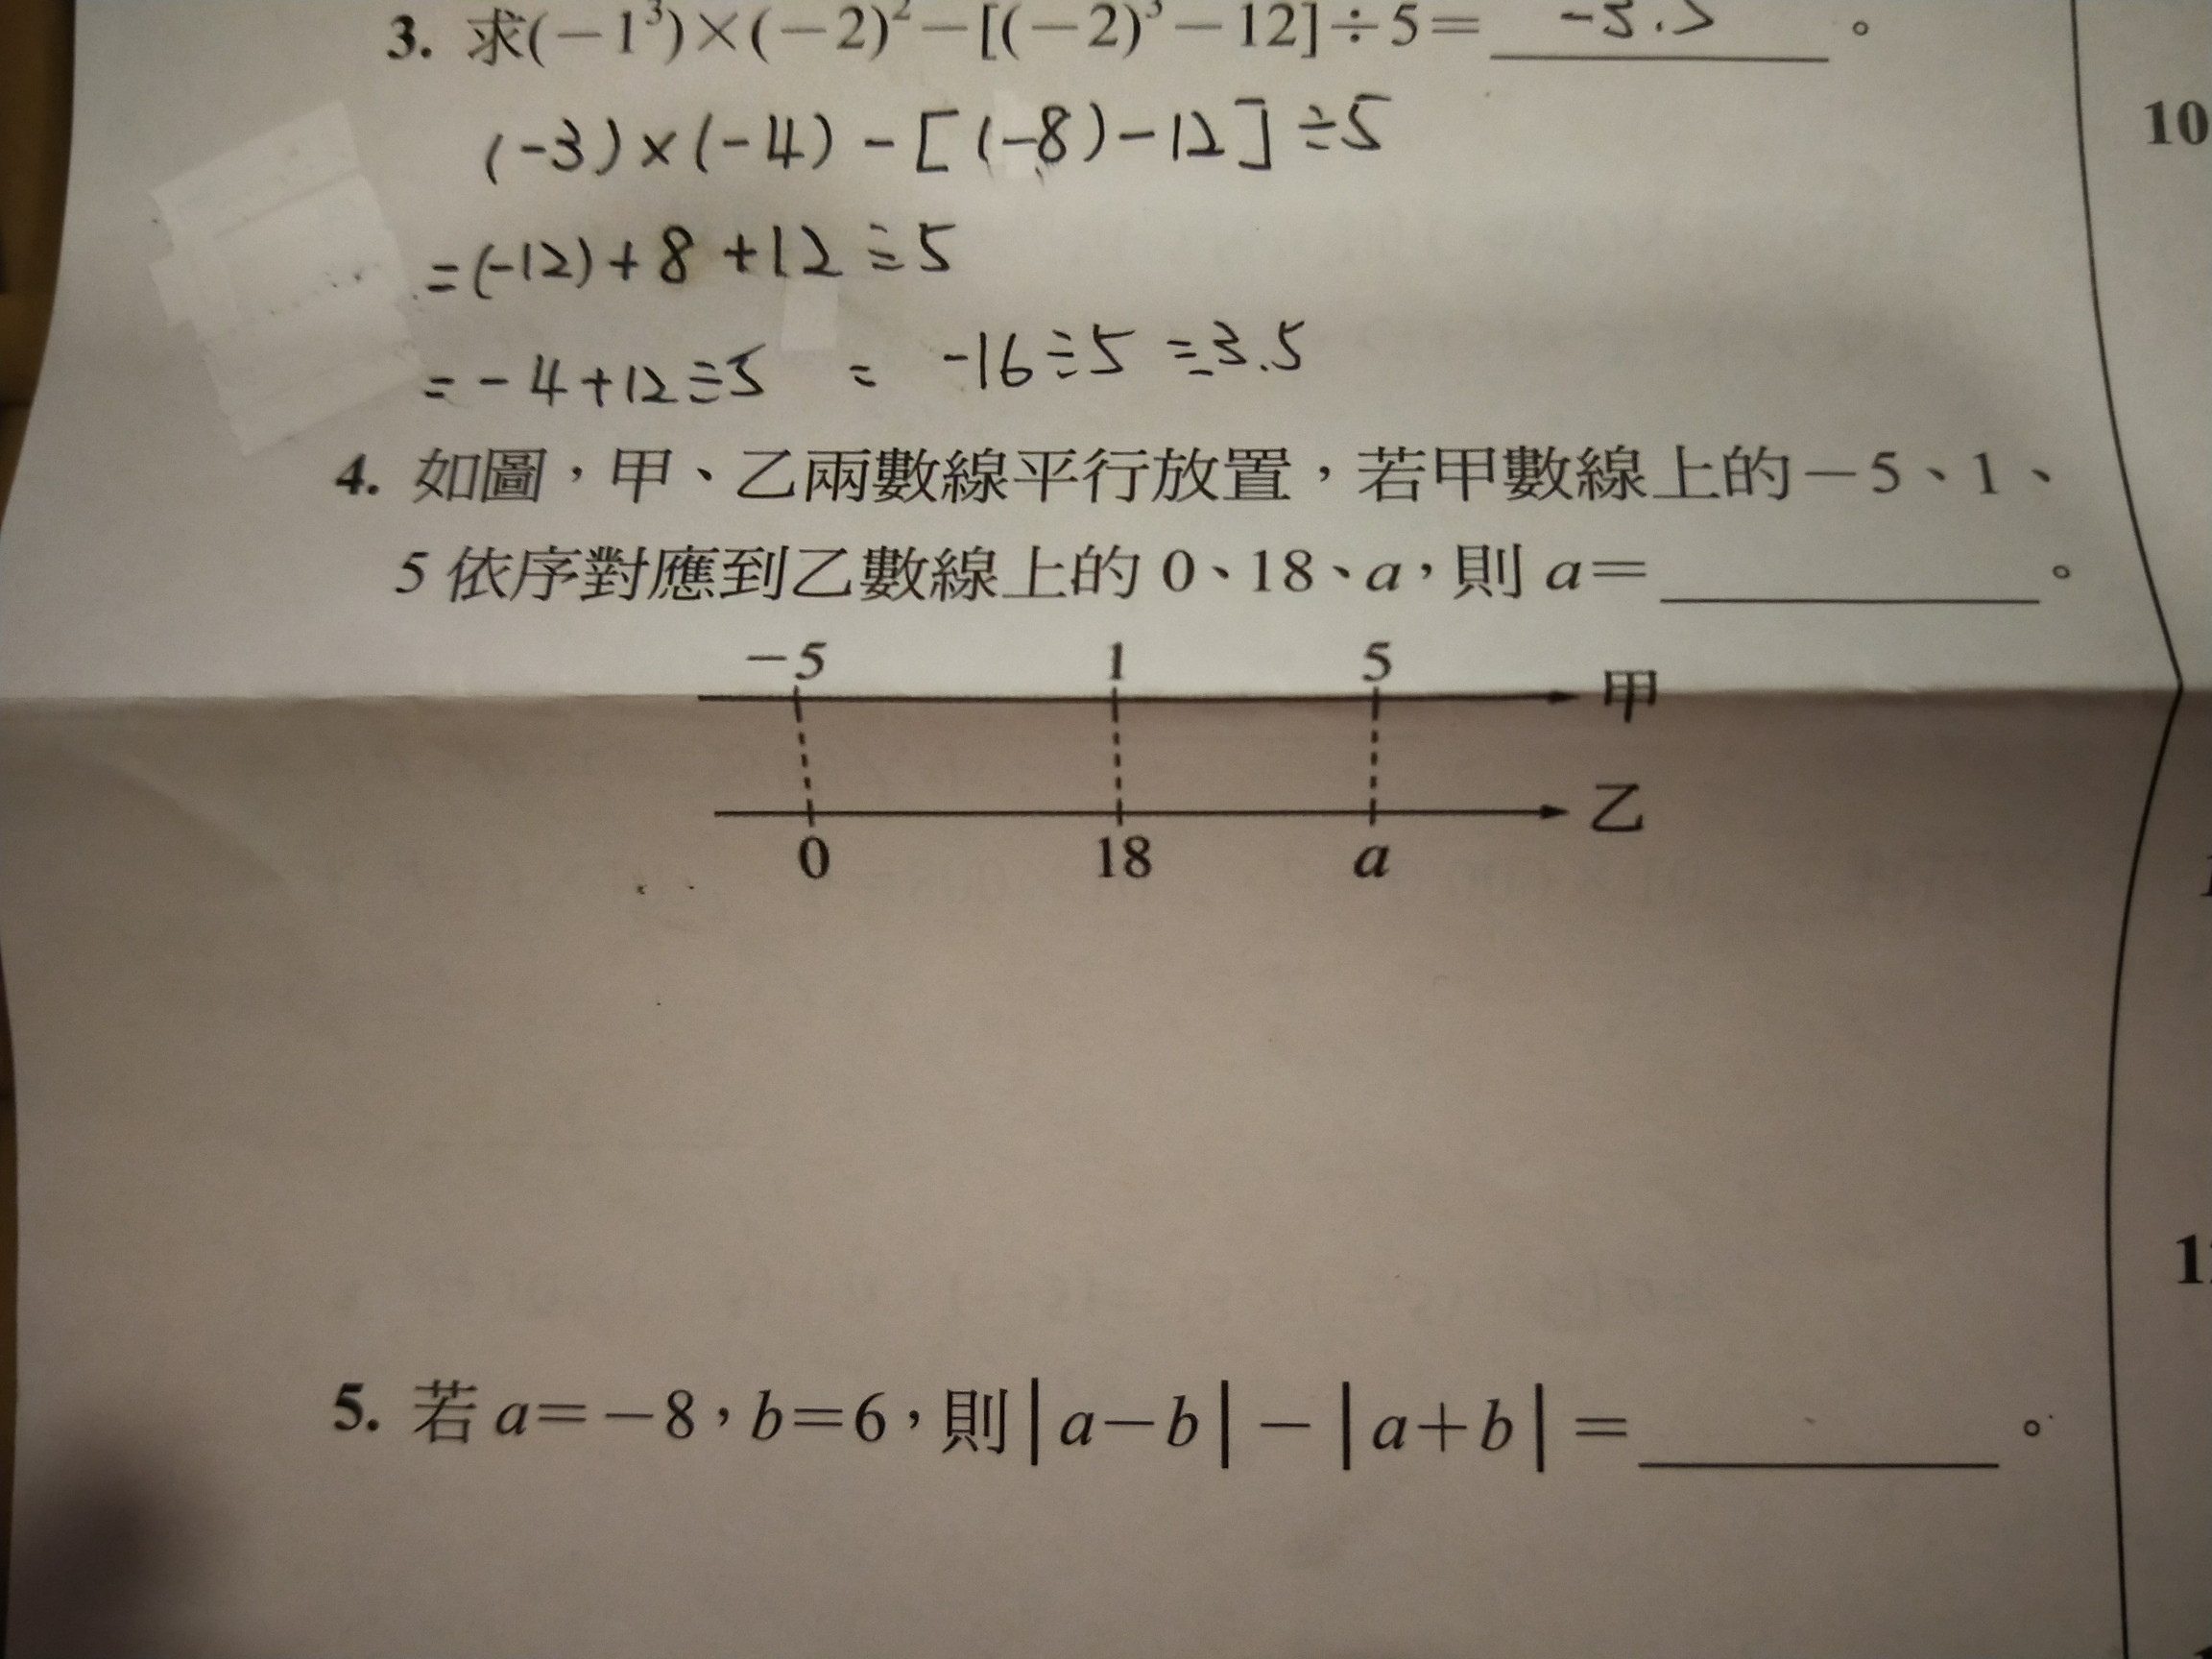 3. 求(−1³)×(−2)²−[(−2)³−12]÷5= 。
10
(-3)×(-4)-[(-8)-12]÷5
=(-12)+8+12÷5
=-4+12÷5 = -16÷5=3.5
4. 如圖，甲、乙兩數線平行放置，若甲數線上的−5、1、
5依序對應到乙數線上的0、18、a，則a= 。
−5 1 5 甲
0 18 a 乙
5. 若a=−8，b=6，則|a−b|−|a+b|= 。